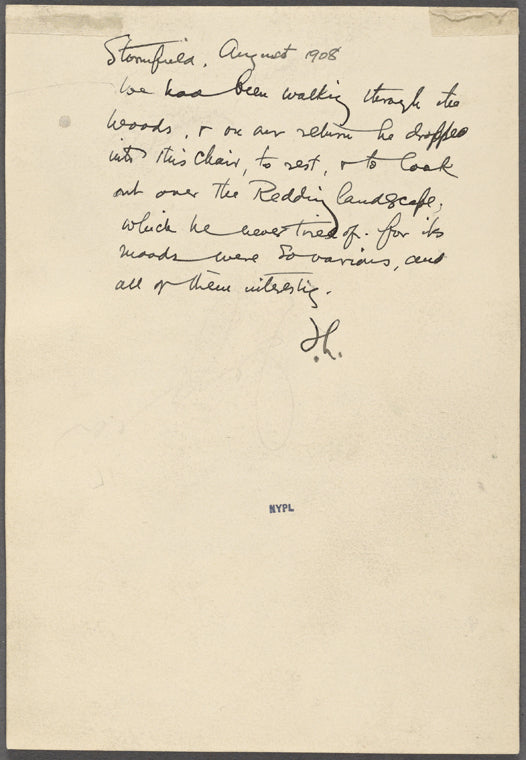 Stormfield, August 1908
We had been walking through the
woods, & on our return he dropped
into this chair, to rest, & to look
out over the Redding landscape,
which he never tired of. for its
moods were so various, and
all of them interesting.
I.L.
NYPL